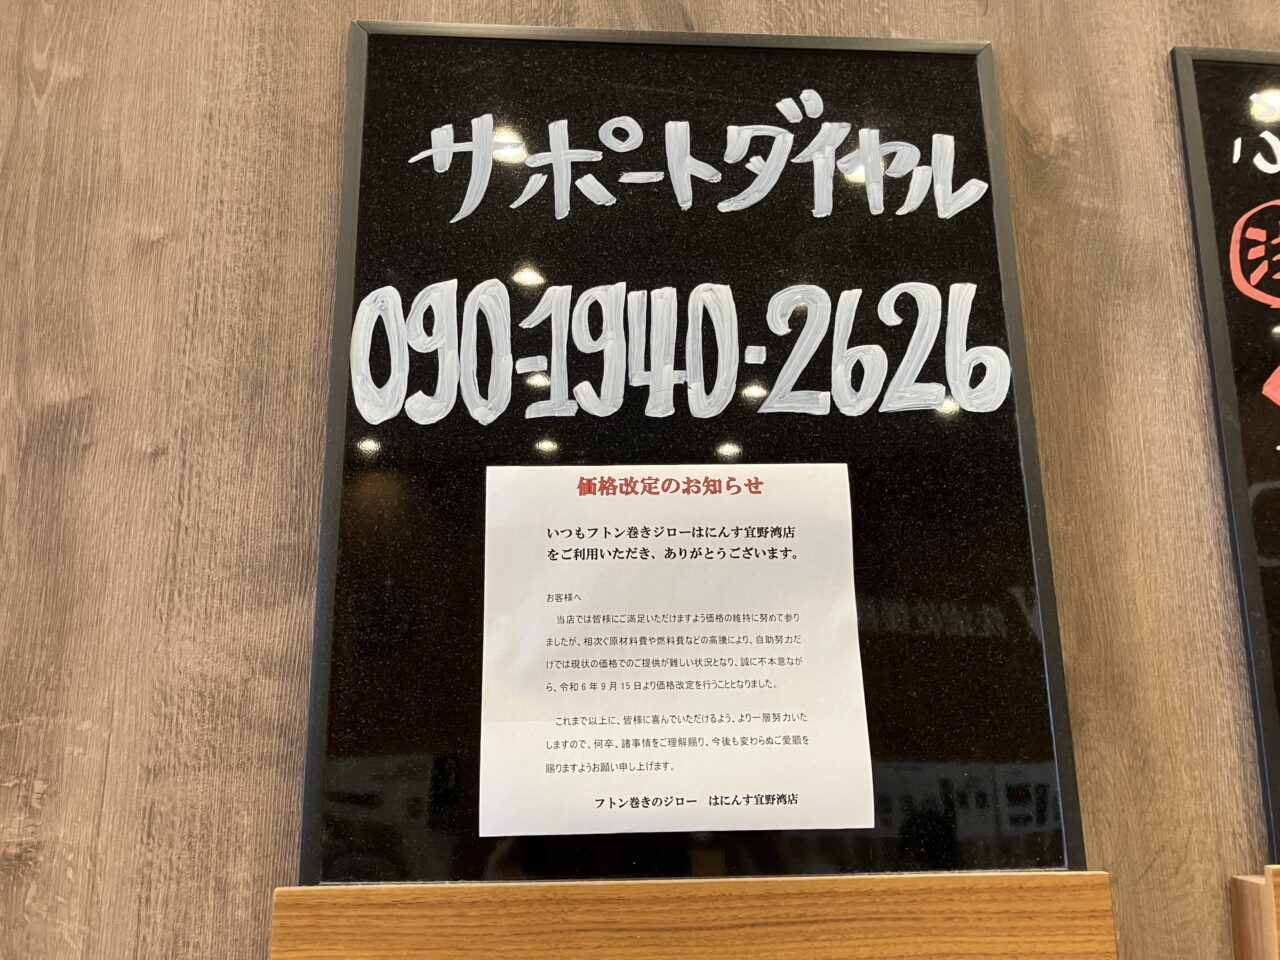 サポートダイヤル
090-1940-2626
価格改定のお知らせ
いつもフトン巻きジローはにんす宜野湾店
をご利用いただき、ありがとうございます。
お客様へ
当店では皆様にご満足いただけますよう価格の維持に努めて参り
ましたが、相次ぐ原材料費や燃料費などの高騰により、自助努力だ
けでは現状の価格でのご提供が難しい状況となり、誠に不本意なが
ら、令和6年9月15日より価格改定を行うこととなりました。
これまで以上に、皆様に喜んでいただけるよう、より一層努力いた
しますので、何卒、諸事情をご理解賜り、今後も変わらぬご愛顧を
賜りますようお願い申し上げます。
フトン巻きのジロー はにんす宜野湾店